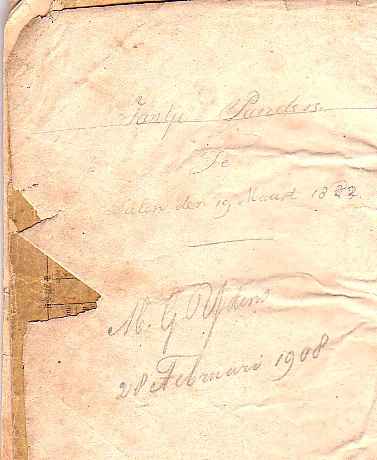 Jantje Panders
Te
Dalen den 19 Maart 18
M. G.
28 Februari 1908